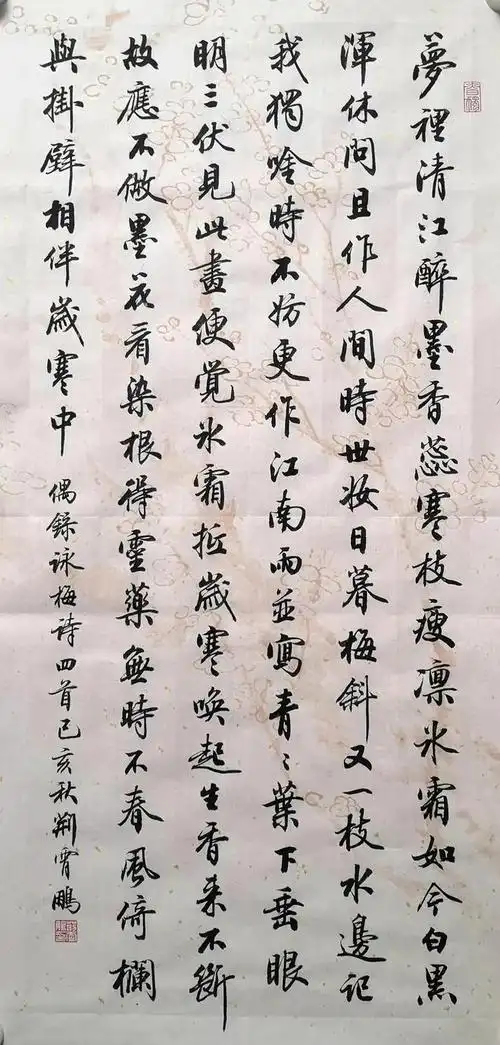 夢裡清江醉墨香蕊寒枝瘦凛氷霜如今白黑
渾休問且作人間時世妝日暮梅斜又一枝水邊記
我獨唫時不妨更作江南雨並寫青〻葉下垂眼
明三伏見此畫便覺氷霜抵歲寒喚起生香来不斷
故應不倣墨花看染根得靈藥無時不春風倚欄
與掛壁相伴歲寒中
偶錄詠梅詩四首己亥秋荊霄鵬